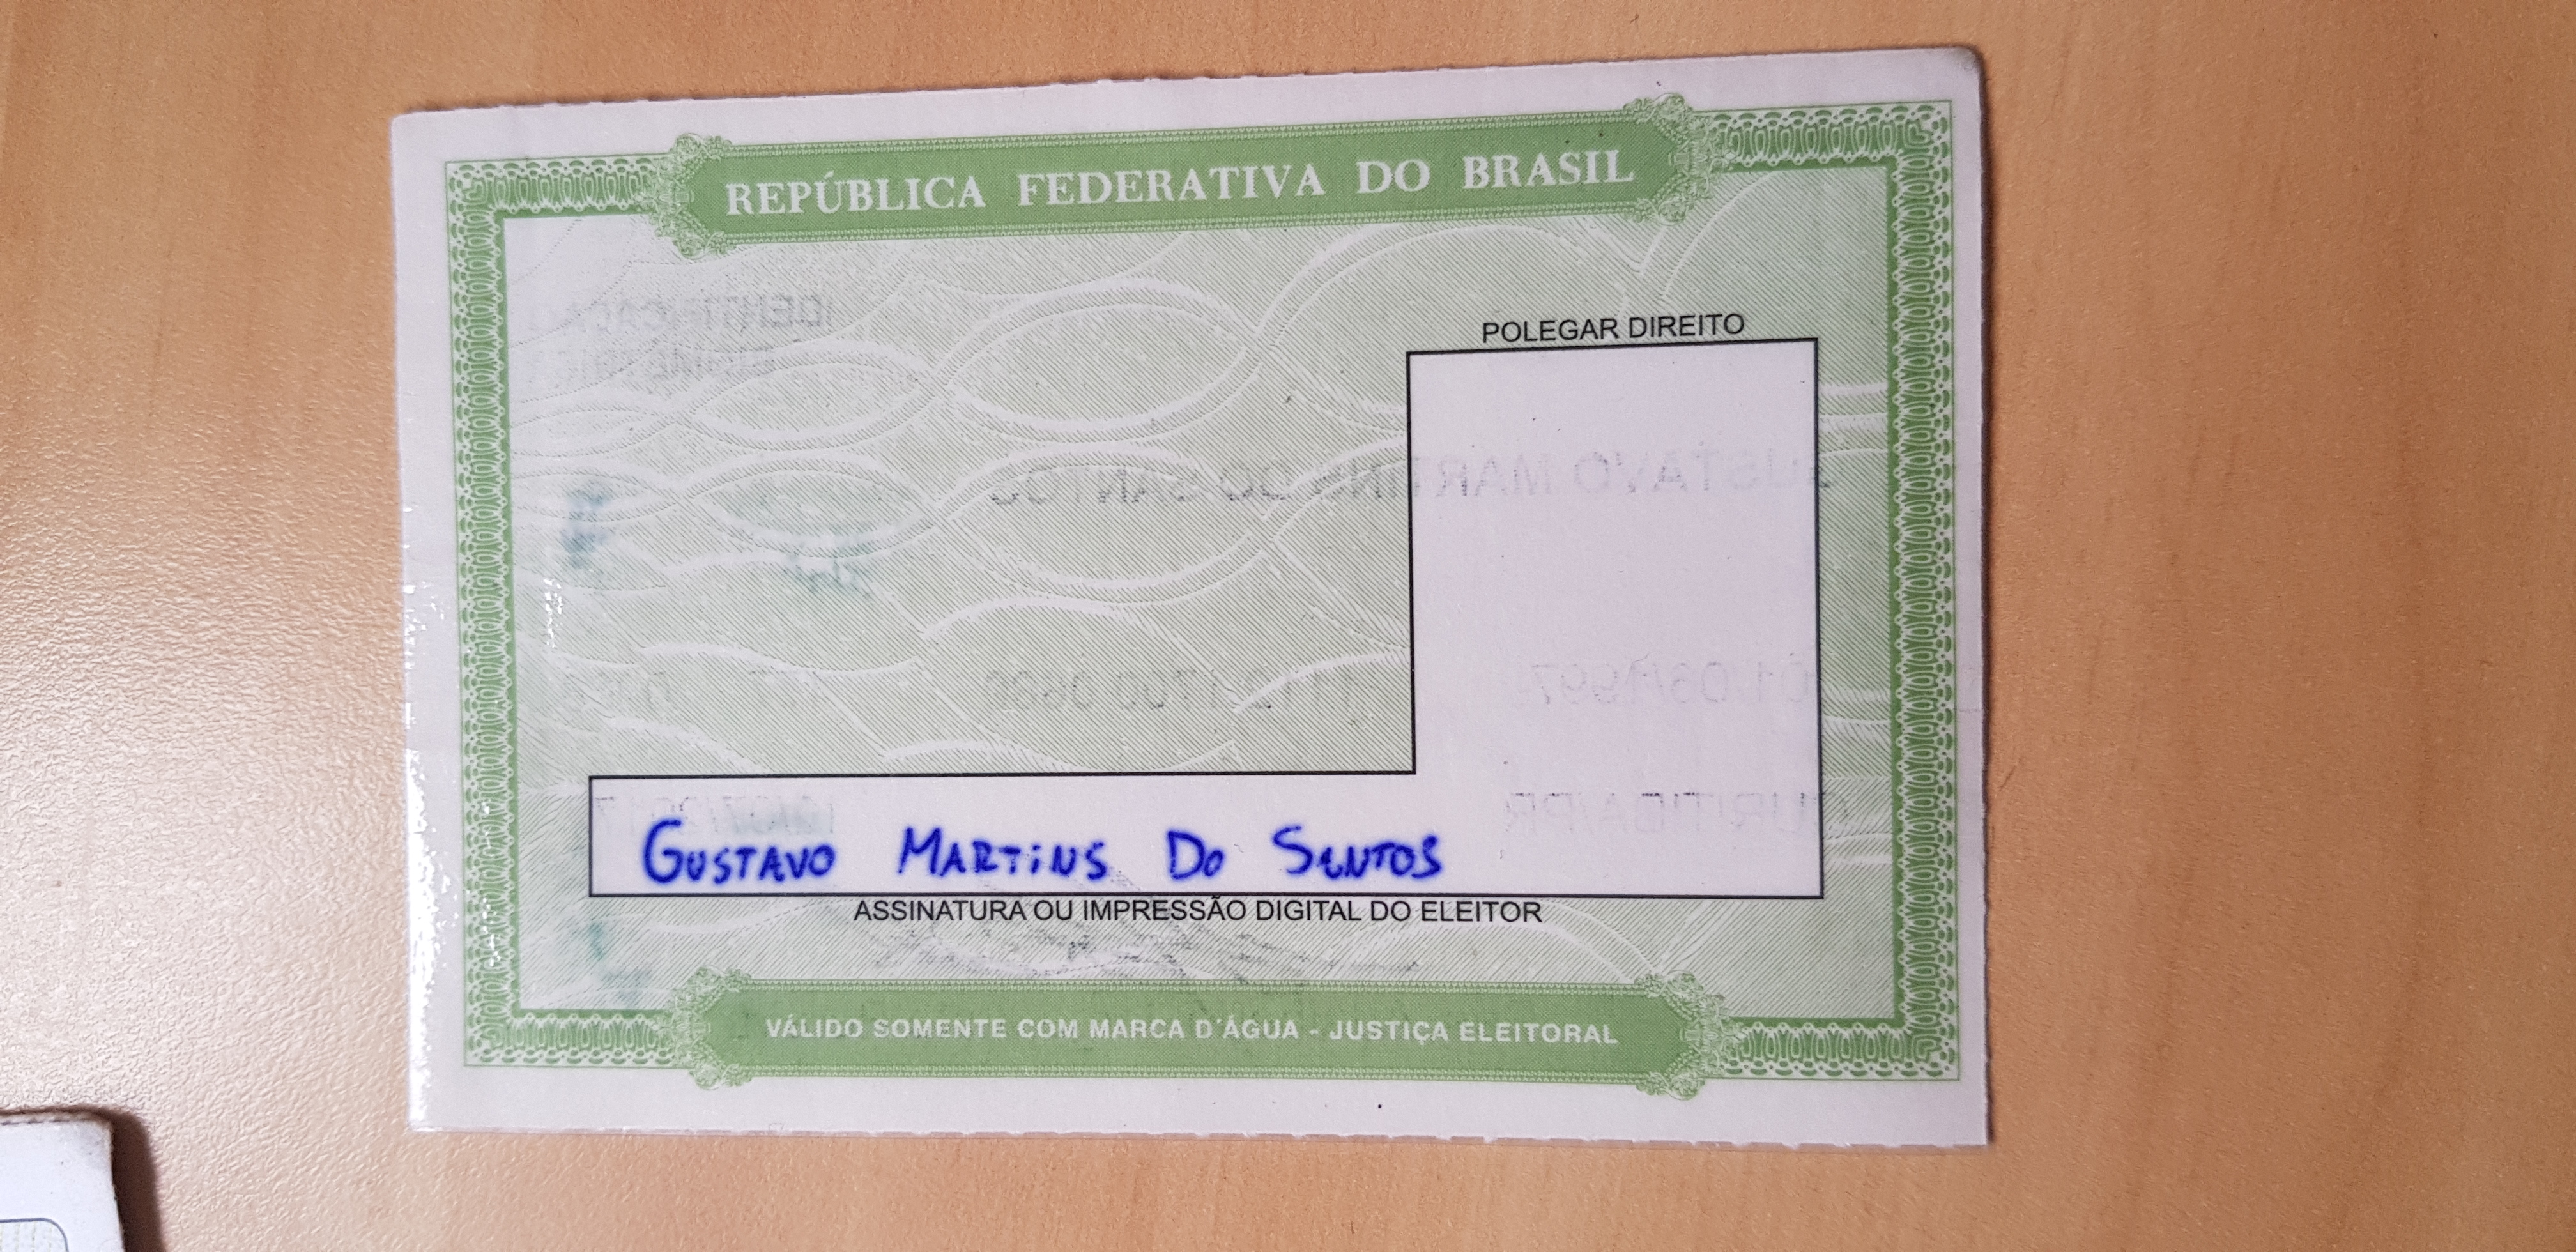 REPÚBLICA FEDERATIVA DO BRASIL
POLEGAR DIREITO
GUSTAVO MARTINS DO SANTOS
ASSINATURA OU IMPRESSÃO DIGITAL DO ELEITOR
VÁLIDO SOMENTE COM MARCA D'ÁGUA - JUSTIÇA ELEITORAL